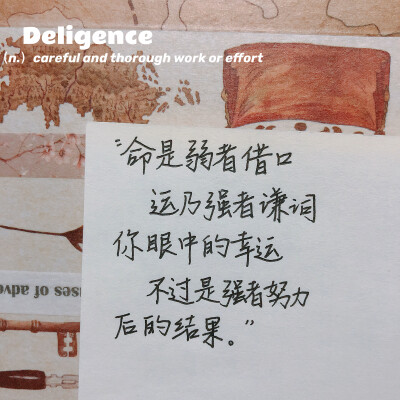 Deligence
(n.) careful and thorough work or effort
“命是弱者借口
运乃强者谦词
你眼中的幸运
不过是强者努力
后的结果。”
uses of adve